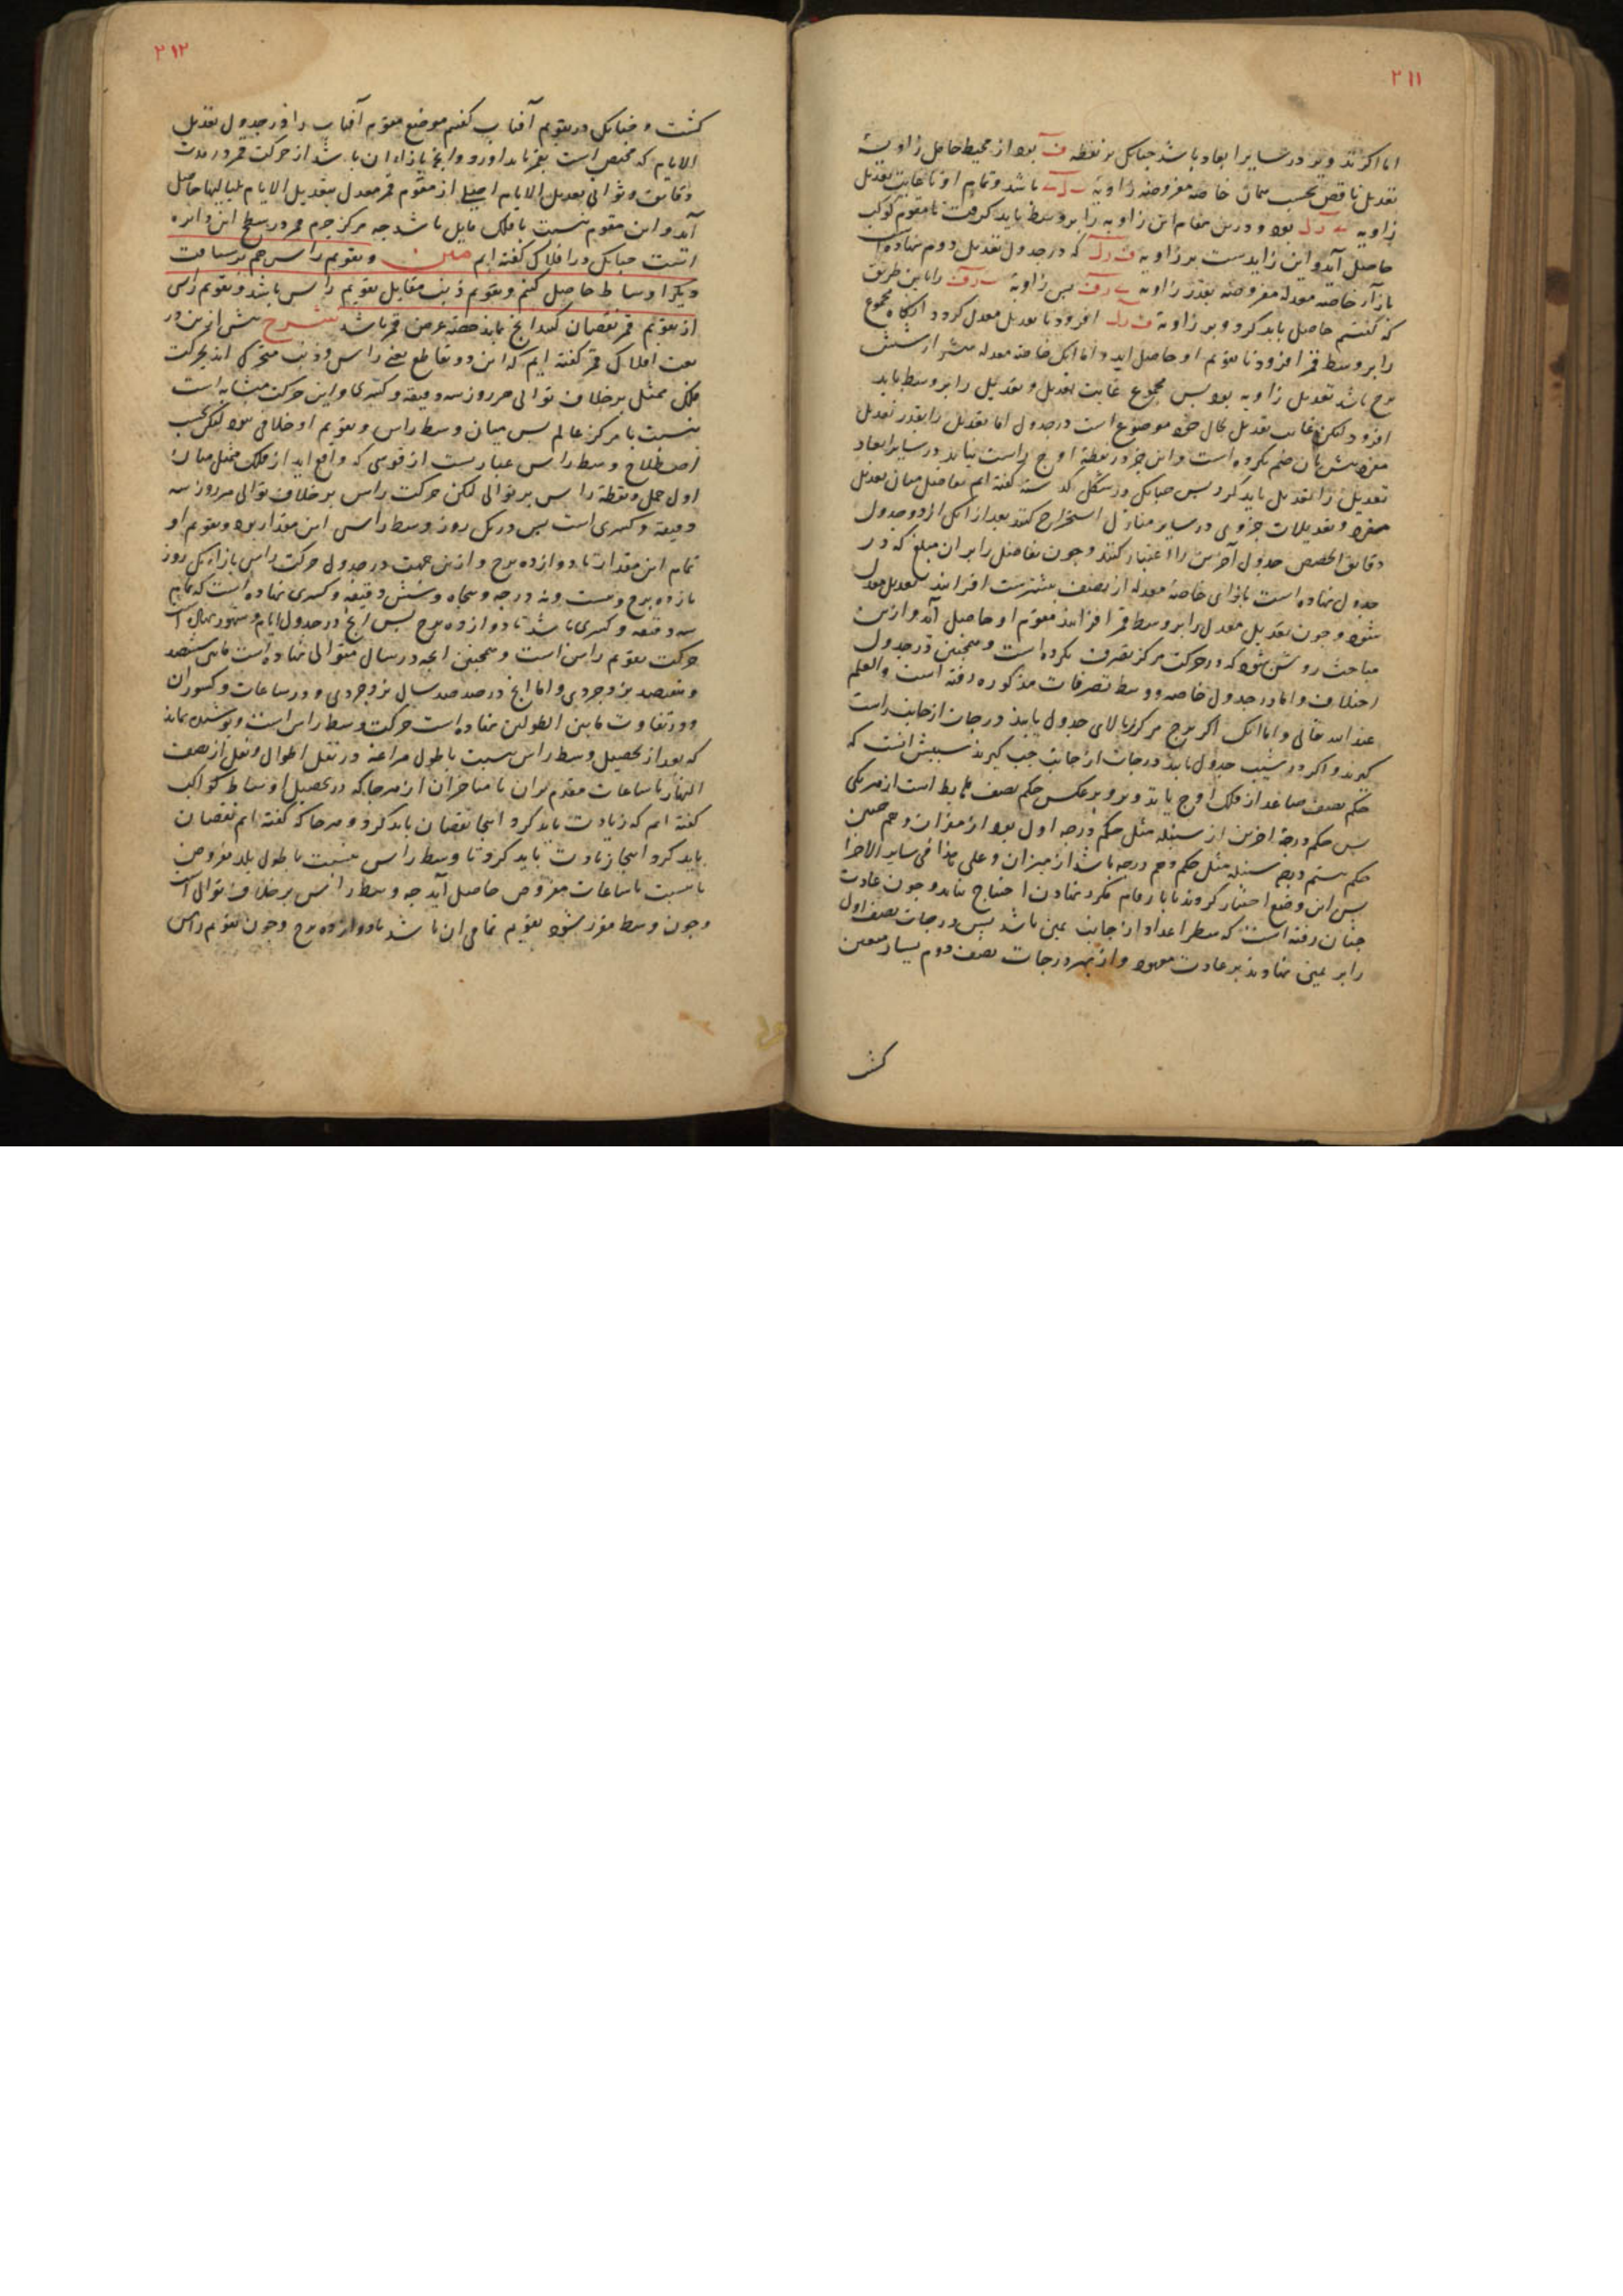 ۲۱۱
اما اگر تدویر در سایر ابعاد باشد چنانک بر نقطه ف بود از محیط حامل زاویۀ
تعدیل ناقص بحسب خاصه مفروضه زاویۀ باشد و تمام او تا غایت تعدیل
زاویه بود و درین مقام این زاویه را بر وسط باید گرفت تا مقوم کوکب
حاصل آید و این زایدست بر زاویه که در جدول تعدیل دوم نهاده است
بازآء خاصه معدله مفروضه بقدر زاویه پس زاویۀ را باین طریق
که گفتیم حاصل باید کرد و بر زاویۀ افزود تا تعدیل معدل گردد آنگاه مجموع
را بر وسط قمر افزود تا تقویم او حاصل آید و اما آنک خاصه معدله بیشتر از شش
برج باشد تعدیل زاویه بود پس مجموع غایت تعدیل و تعدیل را بر وسط باید
افزود لیکن غایت تعدیل بحال خود موضوع است در جدول اما تعدیل را بقدر تعدیل
مفرد بیش بآن ضم نکرده است و این جز در نقطۀ اوج راست نیاید و در سایر ابعاد
تعدیل را تعدیل باید کرد پس چنانک در شکل گذشته گفته ایم تفاضل میان تعدیل
مفرد و تعدیلات جزوی در سایر منازل استخراج کنند بعد از آنک از دو جدول
دقایق الحصص جدول آخرین را اعتبار کنند و چون تفاضل را بر آن مبلغ که در
جدول نهاده است بازای خاصه معدله از نصف بیشترست افزایند تعدیل معدل
شود و چون تعدیل معدل را بر وسط قمر افزایند مقوم او حاصل آید و ازین
مباحث روشن شود که در حرکت مرکز تصرف نکرده است و همچنین در جدول
اختلاف و اما در جدول خاصه و وسط تصرفات مذکوره رفته است والعلم
عند الله تعالی و اما آنک اگر برج مرکز بالای جدول یابند درجات از جانب راست
گیرند و اگر در شیب جدول یابند درجات از جانب چپ گیرند سببش آنست که
حکم نصف صاعد از فلک اوج یا تدویر بر عکس حکم نصف هابط است از هر یکی
پس حکم درجۀ آخرین از سنبله مثل حکم درجه اول بود از میزان و همچنین
حکم بیستم درجه سنبله مثل حکم دهم درجه باشد از میزان و علی هذا فی سایر الاجزا
پس این وضع اختیار کردند تا بارقام مکرر نهادن احتیاج نیاید و چون عادت
چنان رفته است که سطر اعداد از جانب یمین باشد پس درجات نصف اول
را بر یمین نهادند بر عادت معهود و از بهر درجات نصف دوم یسار معین
گشت
۲۱۲
گشت و چنانک در تقویم آفتاب گفتیم موضع مقوم آفتاب را در جدول تعدیل
الایام که مختص است بقمر باید آورد و آنچ بازاء آن باشد از حرکت قمر در مدت
دقایق و ثوانی تعدیل الایام از مقوم قمر معدل بتعدیل الایام بلیالیها حاصل
آید و این مقوم بنسبت با فلک مایل باشد چه مرکز جرم قمر در سطح این دایره
است چنانک در افلاک گفته ایم متن و تقویم راس هم بر سیاقت
دیگر اوساط حاصل کنیم و تقویم ذنب مقابل تقویم راس باشد و تقویم راس
از تقویم قمر نقصان کنند آنچ بماند حصۀ عرض قمر باشد شرح پیش ازین در
نعت افلاک قمر گفته ایم که این دو تقاطع یعنی راس و ذنب متحرک اند بحرکت
فلک ممثل بر خلاف توالی هر روز سه دقیقه و کسری و این حرکت متشابه است
بنسبت با مرکز عالم پس میان وسط راس و تقویم او خلافی نبود لیکن بحسب
اصطلاح وسط راس عبارتست از قوسی که واقع آید از فلک ممثل میان
اول حمل و نقطۀ راس بر توالی لکن حرکت راس بر خلاف توالی هر روز سه
دقیقه و کسری است پس در یک روز وسط راس این مقدار بود و تقویم او
تمام این مقدار تا دوازده برج و ازین جهت در جدول حرکت راس بازاء یک روز
یازده برج و بیست و نه درجه و پنجاه و شش دقیقه و کسری نهاده است که تمام
سه دقیقه و کسری باشد تا دوازده برج پس آنچ در جدول ایام و شهور نهاده است
حرکت تقویم راس است و همچنین آنچه در سال متوالی نهاده است مابین ششصد
و هفتصد یزدجردی و اما آنچ در صد صد سال یزدجردی و در ساعات و کسور آن
و در تفاوت مابین الطولین نهاده است حرکت وسط راس است و پوشیده نماند
که بعد از تحصیل وسط راس بنسبت با طول مراغه در نقل اطوال و نقل از نصف
النهار با ساعات مقدم بر آن یا متاخر از آن هرجا که در تحصیل اوساط کواکب
گفته ایم که زیادت باید کرد اینجا نقصان باید کرد و هرجا که گفته ایم نقصان
باید کرد اینجا زیادت باید کرد تا وسط راس بنسبت با طول بلد مفروض
یا بنسبت با ساعات مفروض حاصل آید چه وسط راس بر خلاف توالی است
و چون وسط مقرر شود تقویم تمامی آن باشد تا دوازده برج و چون تقویم راس